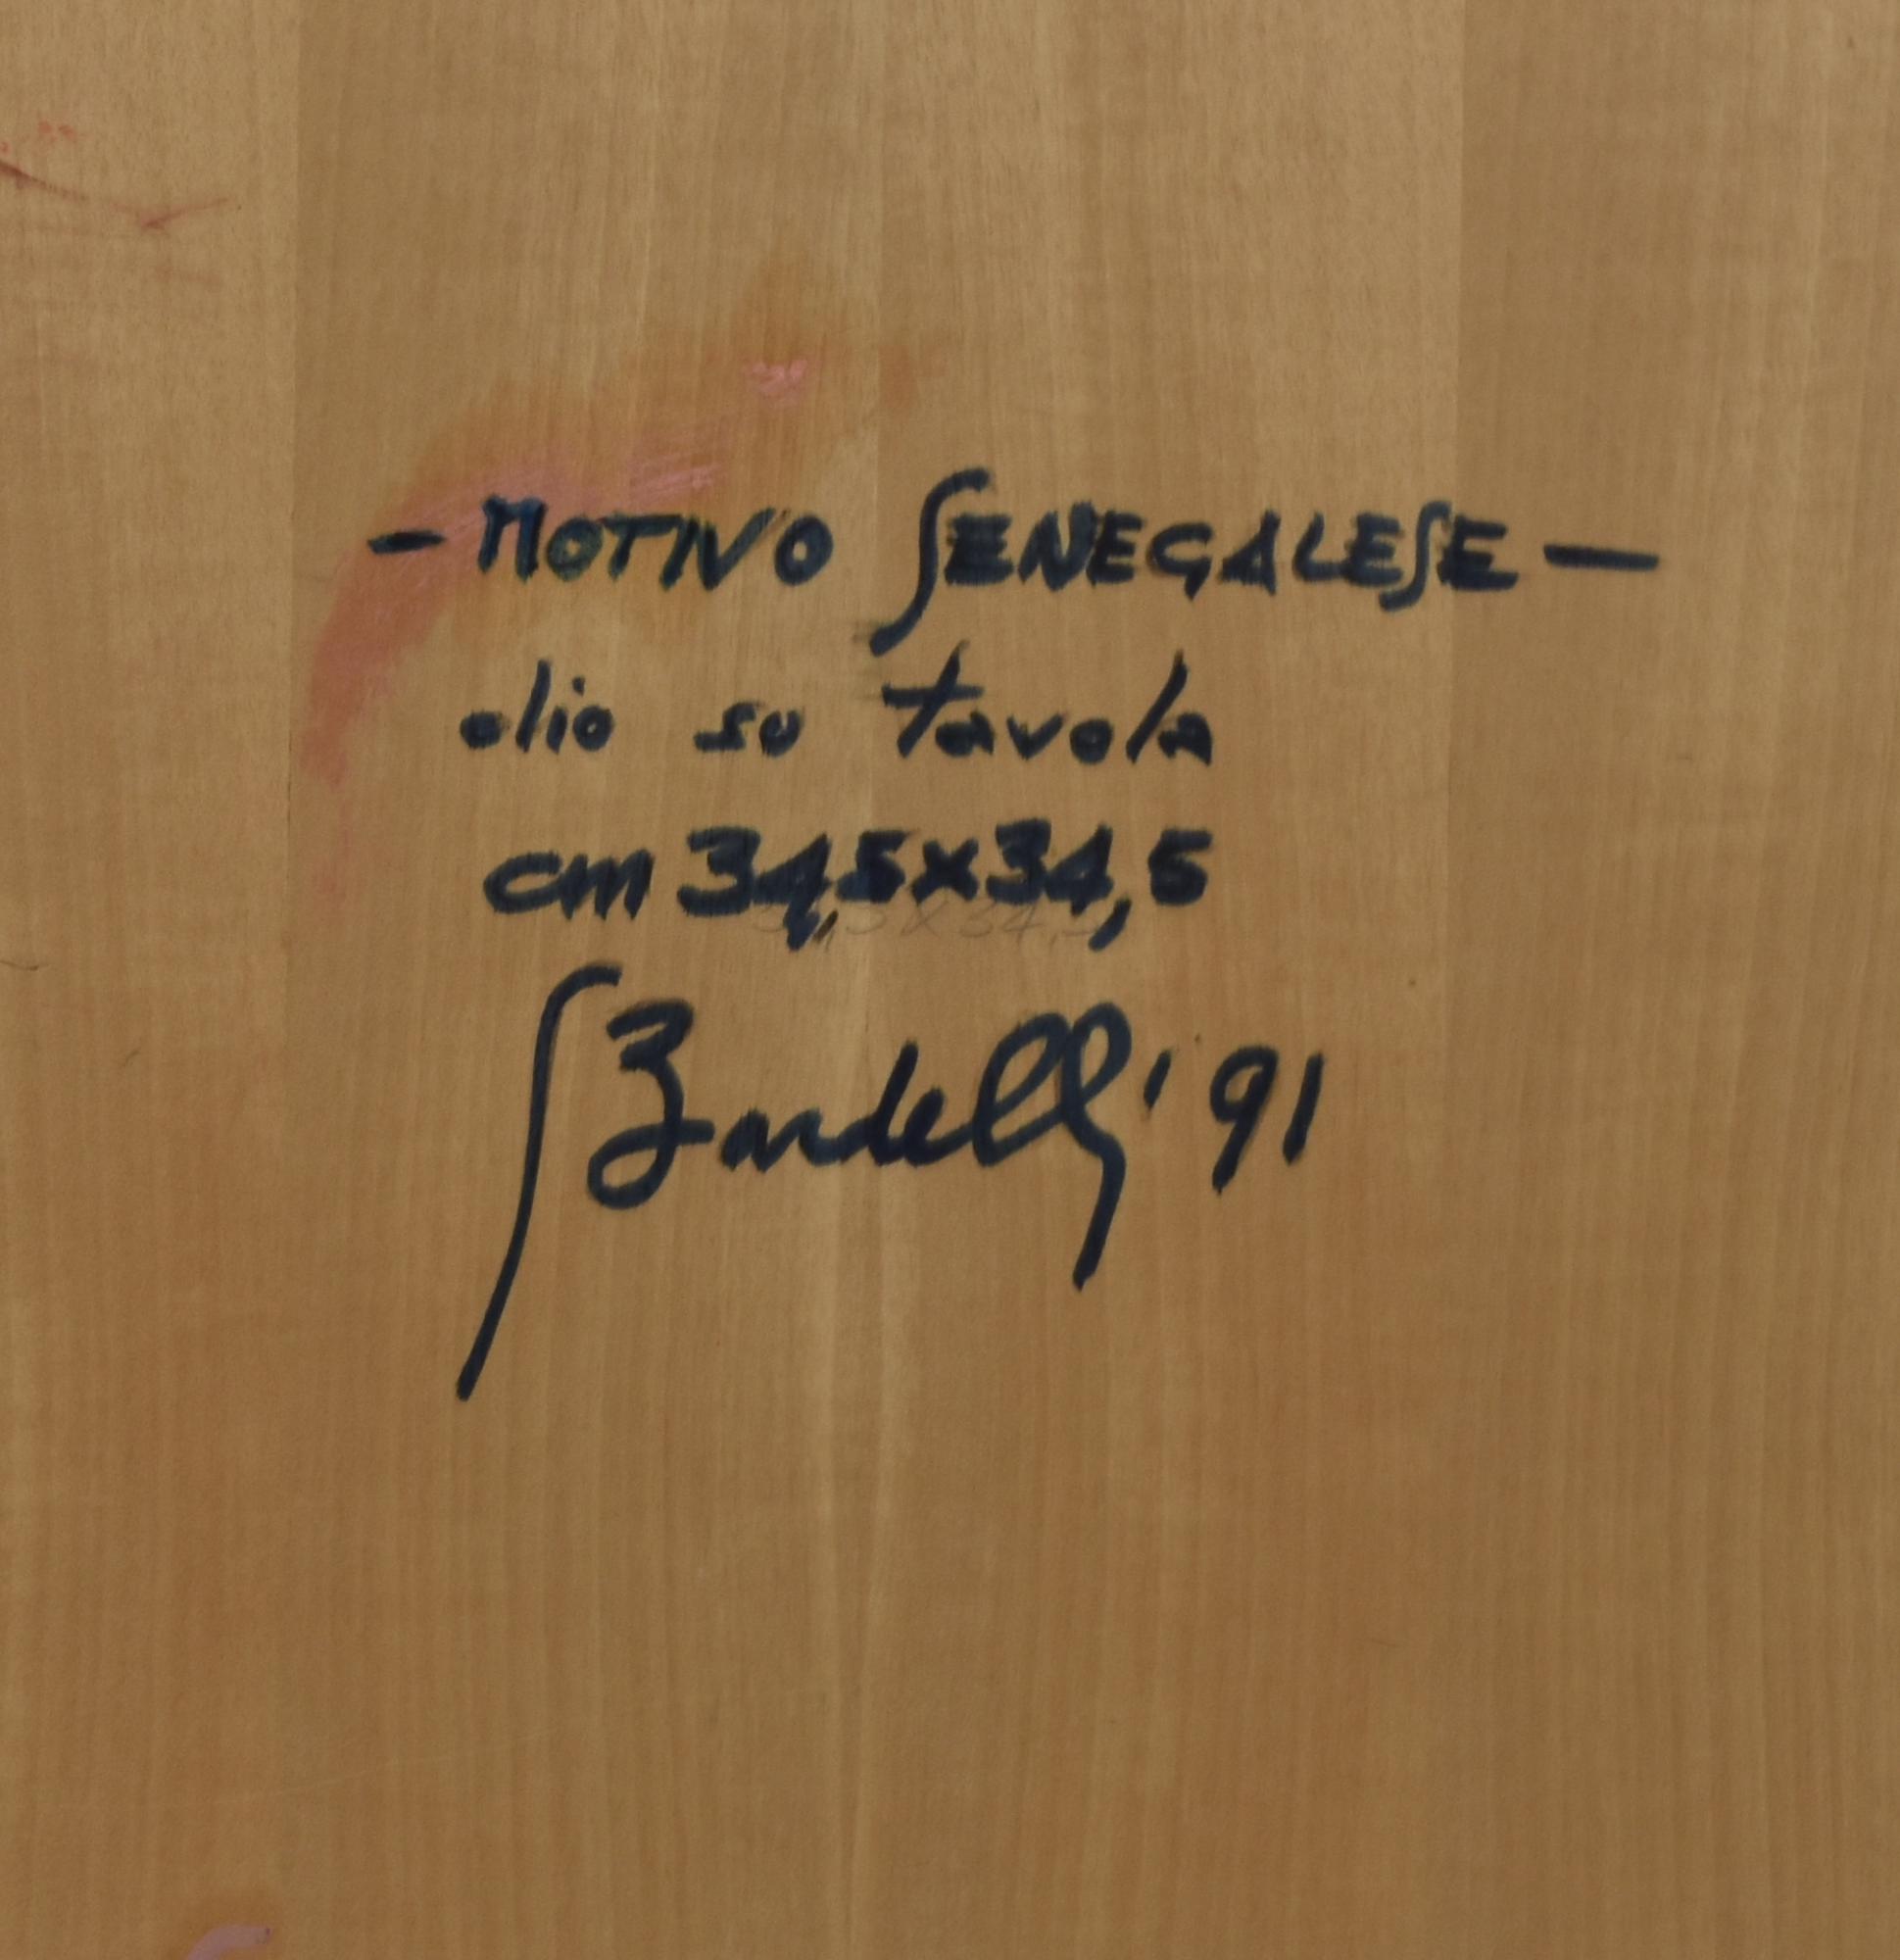 - MOTIVO SENEGALESE -
olio su tavola
cm 34,5x34,5
34,5x34,5
SBardelli '91